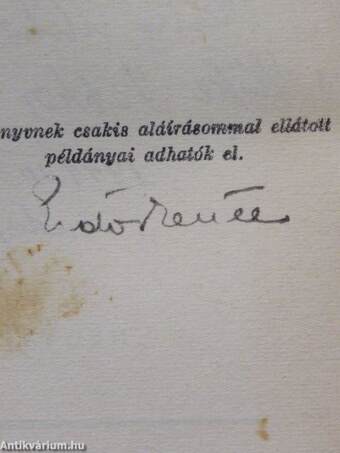 nyvnek csakis aláírásommal ellátott
példányai adhatók el.
Erdős Renée
Antikvárium.hu